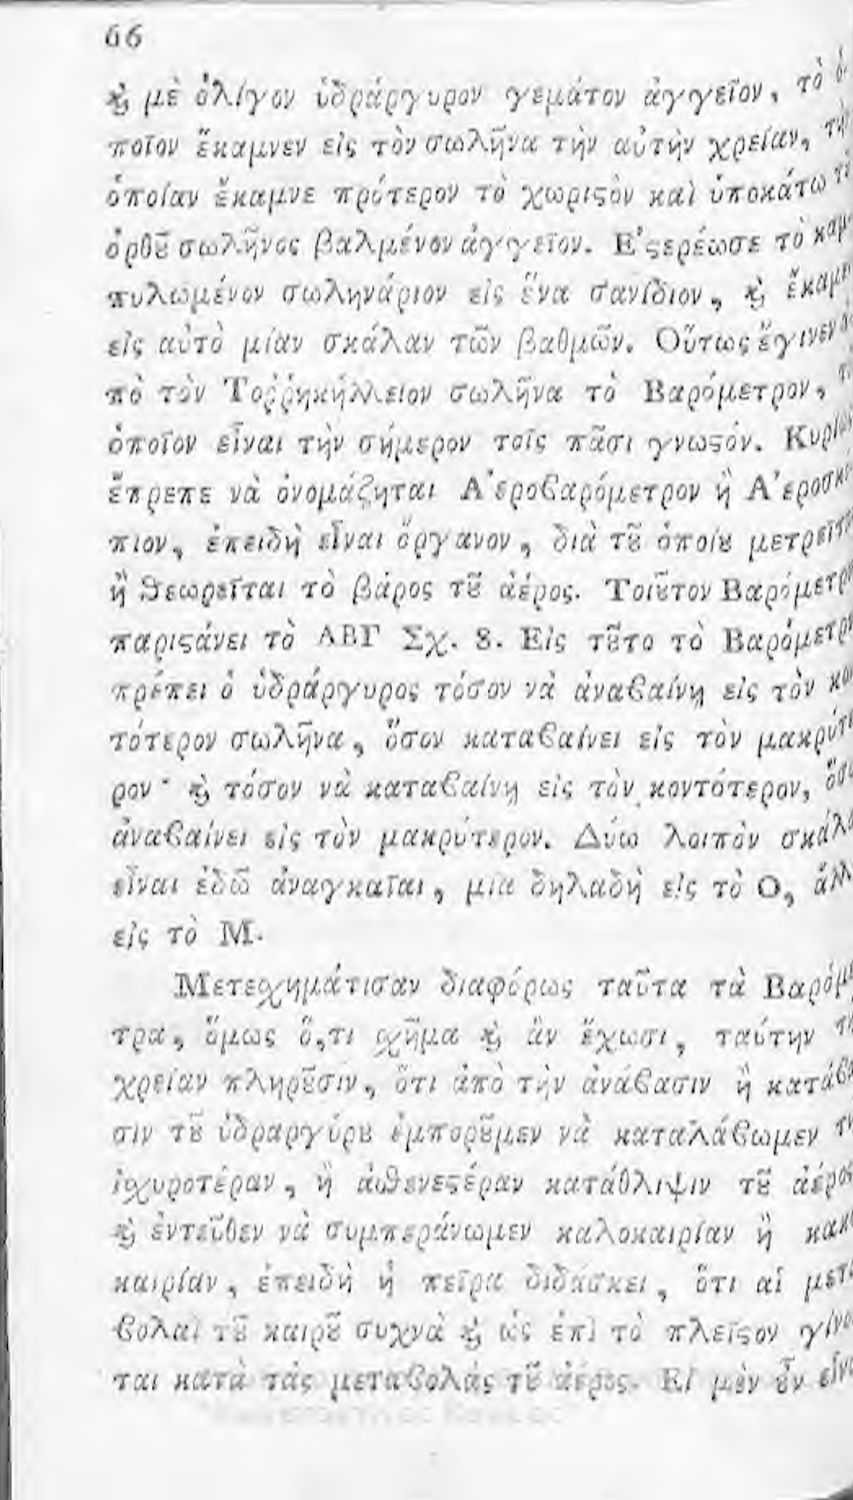 66
ϗ μὲ ὀλίγον ὑδράργυρον γεμάτον ἀγγεῖον, τὸ
ποῖον ἔκαμνεν εἰς τὸν σωλῆνα τὴν αὐτὴν χρείαν, τὴν
ὁποίαν ἔκαμνε πρότερον τὸ χωριϛὸν καὶ ὑποκάτω τȣ
ὀρθȣ͂ σωλῆνος βαλμένον ἀγγεῖον. Ε᾿ϛερέωσε τὸ καμ-
πυλωμένον σωληνάριον εἰς ἕνα σανίδιον, ϗ ἔκαμε
εἰς αὐτὸ μίαν σκάλαν τῶν βαθμῶν. Οὕτως ἔγινεν
πὸ τὸν Τοῤῥηκήλλειον σωλῆνα τὸ Βαρόμετρον,
ὁποῖον εἶναι τὴν σήμερον τοῖς πᾶσι γνωϛόν. Κυρίως
ἔπρεπε νὰ ὀνομάζηται Α᾿εροβαρόμετρον ἢ Α᾿εροσκό
πιον, ἐπειδὴ εἶναι ὄργανον, διὰ τȣ͂ ὁποίȣ μετρεῖται
ἢ θεωρεῖται τὸ βάρος τȣ͂ ἀέρος. Τοιȣ͂τον Βαρόμετρ
παριϛάνει τὸ ΑΒΓ Σχ. 8. Εἰς τȣ͂το τὸ Βαρόμετρ
πρέπει ὁ ὑδράργυρος τόσον νὰ ἀναϐαίνῃ εἰς τὸν κον
τότερον σωλῆνα, ὅσον καταϐαίνει εἰς τὸν μακρύτε
ρον· ϗ τόσον νὰ καταϐαίνῃ εἰς τὸν κοντότερον, ὅσ
ἀναϐαίνει εἰς τὸν μακρύτερον. Δύω λοιπὸν σκάλ
εἶναι ἐδῶ ἀναγκαῖαι, μία δηλαδὴ εἰς τὸ Ο, ἄλλ
εἰς τὸ Μ.
Μετεχημάτισαν διαφόρως ταῦτα τὰ Βαρόμε
τρα, ὅμως ὅ,τι χῆμα ϗ ἂν ἔχωσι, ταύτην τ
χρείαν πληρȣ͂σιν, ὅτι ἀπὸ τὴν ἀνάϐασιν ἢ κατάϐα
σιν τȣ͂ ὑδραργύρȣ ἐμπορȣ͂μεν νὰ καταλάϐωμεν τ
ἰχυροτέραν, ἢ ἀσθενεϛέραν κατάθλιψιν τȣ͂ ἀέρος
ϗ ἐντεῦθεν νὰ συμπεράνωμεν καλοκαιρίαν ἢ κακ
καιρίαν, ἐπειδὴ ἡ πεῖρα διδάσκει, ὅτι αἱ μετ
ϐολαὶ τȣ͂ καιρȣ͂ συχνὰ ϗ ὡς ἐπὶ τὸ πλεῖϛον γίνο
ται κατὰ τὰς μεταϐολὰς τȣ͂ ἀέρος. Εἰ μὲν ȣ͂ν εἶν